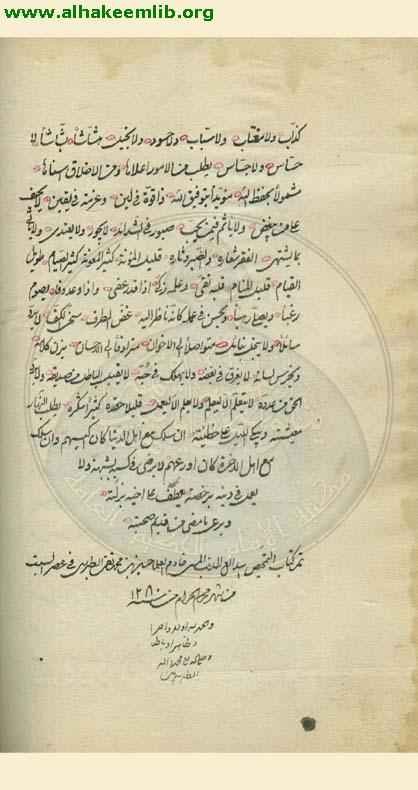 www.alhakeemlib.org
كذاب ولا مغتاب ولا سباب ولا حسود ولا بخيل هشاش بشاش لا
حساس ولا جساس يطلب من الامور اعلاها ومن الاخلاق اسناها
مشمولا بحفظ الله مؤيدا بتوفيق الله ذا قوة في لين وعزمة في يقين لا يحيف
على من يبغض ولا ياثم فيمن يحب صبور في الشدايد لا يجور ولا يعتدي ولا ياتي
بما يشتهي الفقر شعاره والصبر دثاره قليل المؤنة كثير المعونة كثير الصيام طويل
القيام قليل المنام قلبه تقي وعلمه زكي اذا قدر عفى واذا وعد وفى يصوم
رغبا ويصلي رهبا ويحسن في عمله كانه ناظر اليه غض الطرف سخي الكف لا يرد
سائلا ولا يبخل بنائل متواصلا الى الاخوان مترادفا الى الاحسان يزن كلامه
ويخرس لسانه لا يغرق في بغضه ولا يهلك في حبه لا يقبل الباطل من صديقه ولا يرد
الحق من عدوه لا يتعلم الا ليعلم ولا يعلم الا ليعمل قليلا حقده كثيرا شكره يطلب النهار
معيشته ويبكي الليل على خطيئته ان سلك مع اهل الدنيا كان اكيسهم وان سلك
مع اهل الاخرة كان اورعهم لا يرضى في كسبه بشبهة ولا
يعمل في دينه برخصة يعطف على اخيه بزلته
ويرعى ما مضى من قديم صحبته
تم كتاب التمحيص بيد خادم حسين بن محمد تقي في عصر السبت
من شهر محرم الحرام من سنة ١٢٨٠
والحمد لله اولا واخرا
وظاهرا وباطنا
وصلى الله على محمد واله
الطاهرين